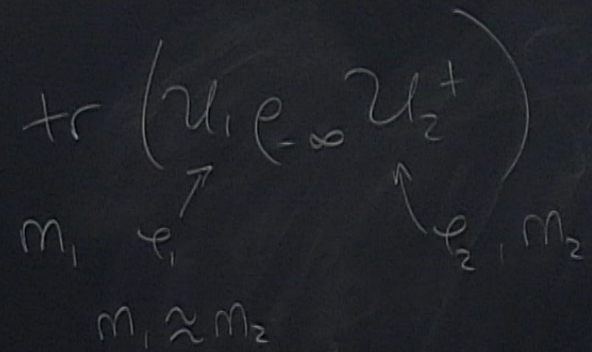 tr (U₁ ρ₋∞ U₂⁺)
m₁ φ₁ φ₂, m₂
m₁ ≈ m₂